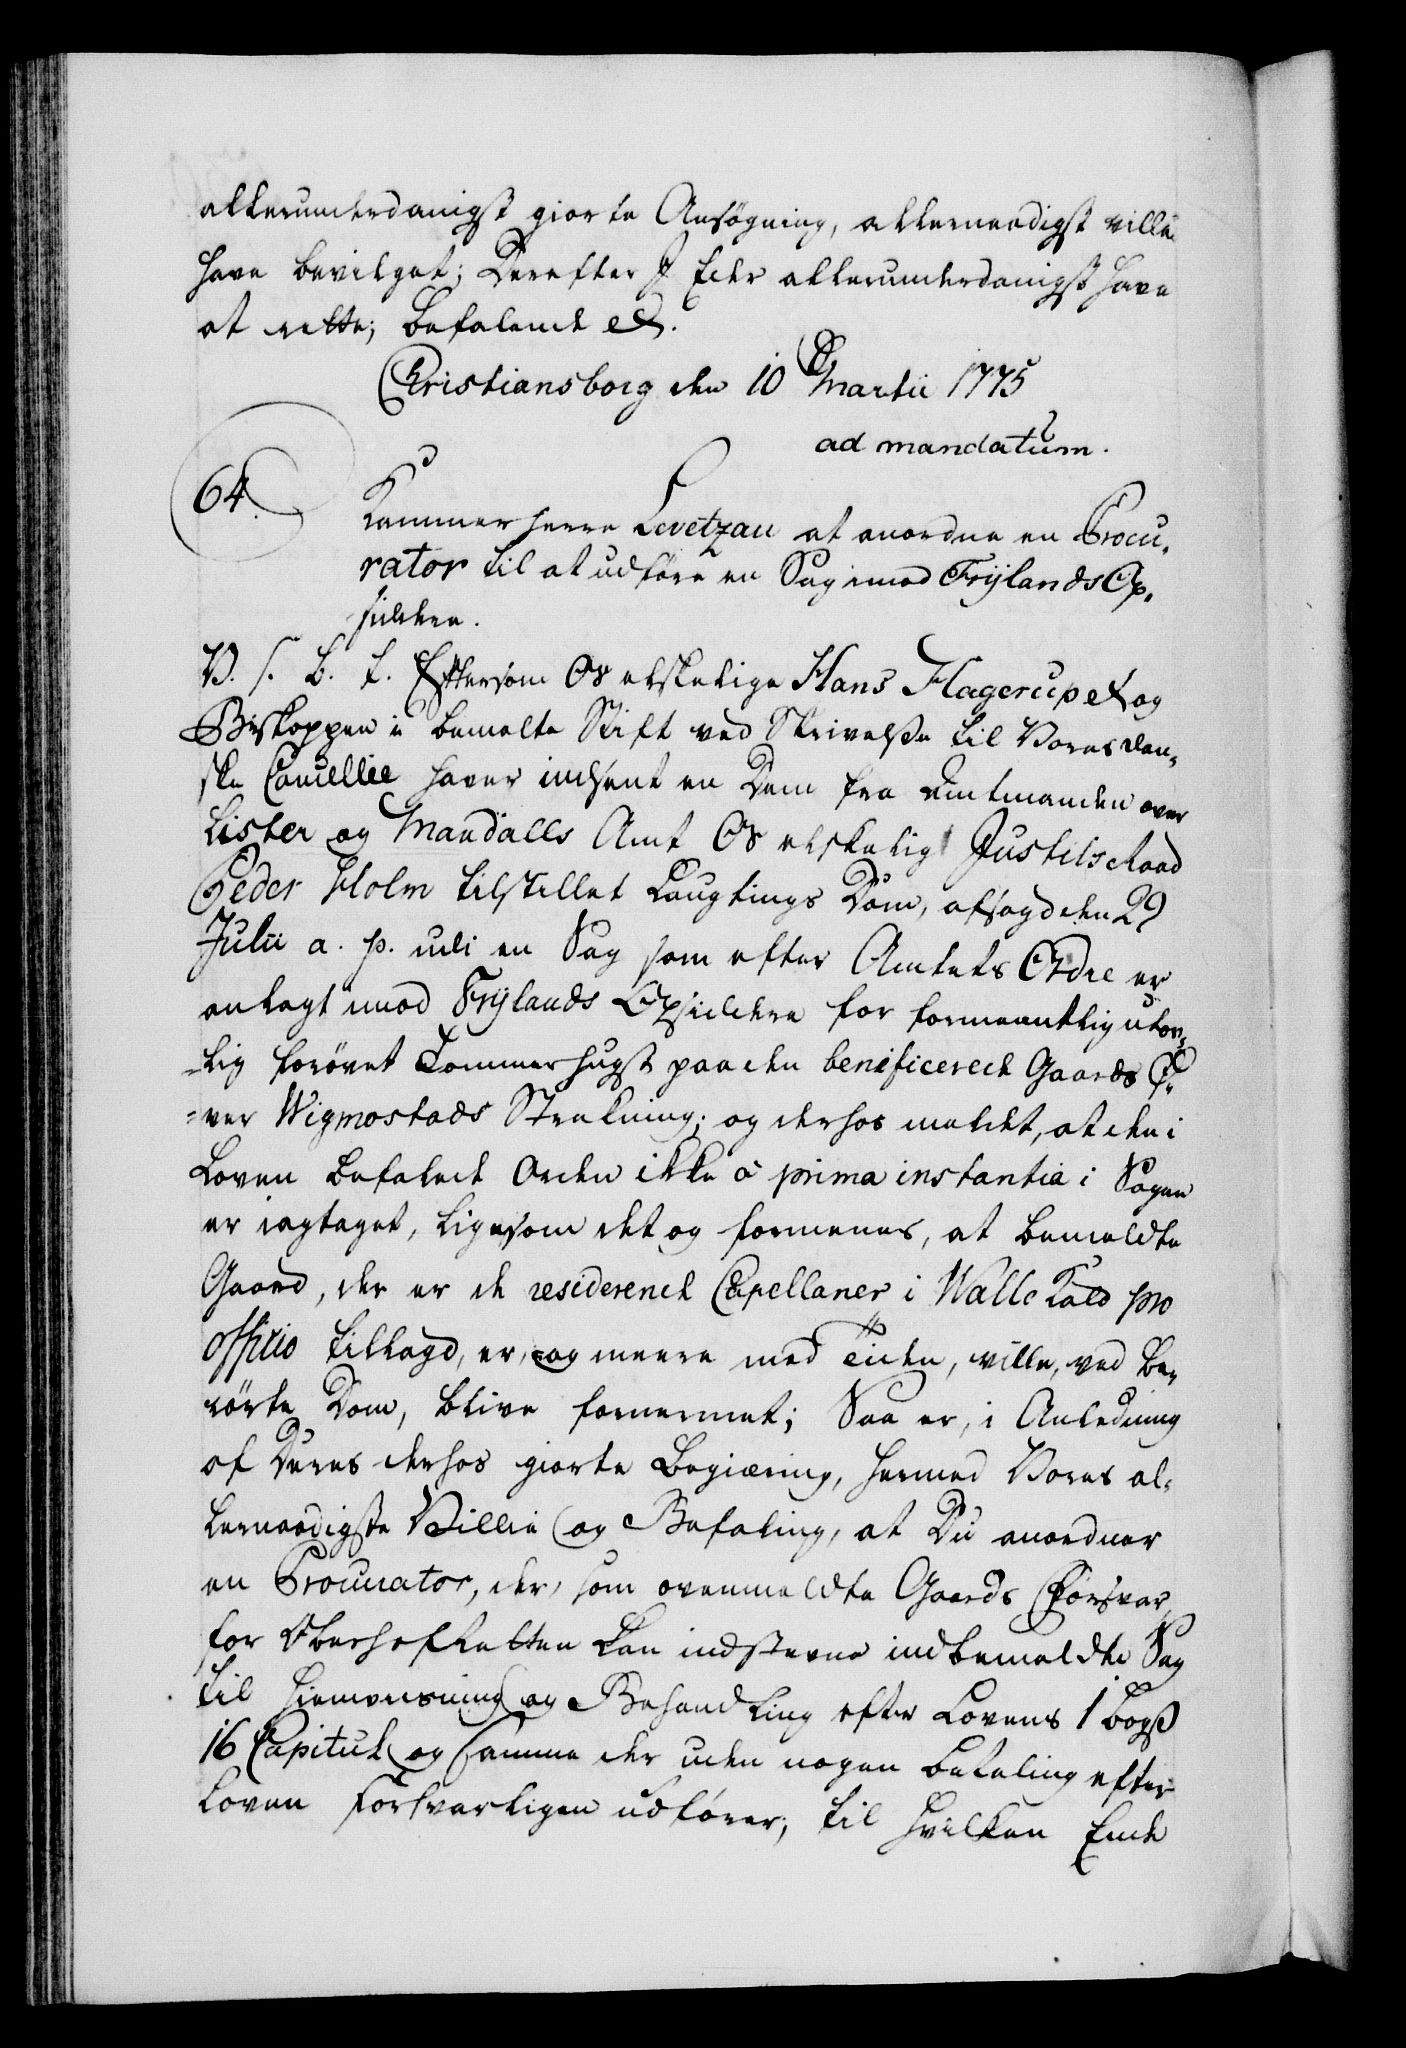 allerunderdanigst giorte Ansøgning, allernaadigst ville
have bevilget; Derefter I Eder allerunderdanigst have
at rette; Befalende etc.
Christiansborg den 10 Martii 1775
ad mandatum.
64. Kammerherre Levetzau at anordne en Procu-
rator til at udføre en Sag imod Frÿlands Op-
sidder.
V. S. B. T. Eftersom Os elskelige Hans Hagerup etc og
Biskoppen i bemelte Stift ved Skrivelse til Vores dan-
ske Cancellie haver indsent en Dem fra Amtmanden over
Lister og Mandalls Amt Os elskelig Justitsraad
Peder Holm tilstillet Laugtings Dom, afsagd den 29
Julii a. p. udi en Sag som efter Amtets Ordre er
anlagt imod Frÿlands Opsiddere for formeentlig ulov-
-lig forøvet Tømmerhugst paa den beneficerede Gaards
-ver Wigmostads Strekning; og derhos meldt, at den i
Loven befalede Orden ikke a prima instantia i Sagen
er iagtaget, ligesom det og formenes, at bemeldte
Gaard, der er de residerende Capellaner i Walle Kald pro
officio tillagd, er, og meere med Tiden, ville, ved be-
rørte Dom, blive fornermet; Saa er, i Anledning
af Deres derhos giorte Begiæring, hermed Vores al-
lernaadigste Villie og Befaling, at Du anordner
en Procurator, der, som ovenmeldte Gaards Forsvar,
for Oberhofretten kan indstevne indbemeldte Sag
til Hiemvisning og Behandling efter Lovens 1 Bogs
16 Capitul og samme der uden nogen betaling efter
Loven forsvarligen udfører; til hvilken Ende